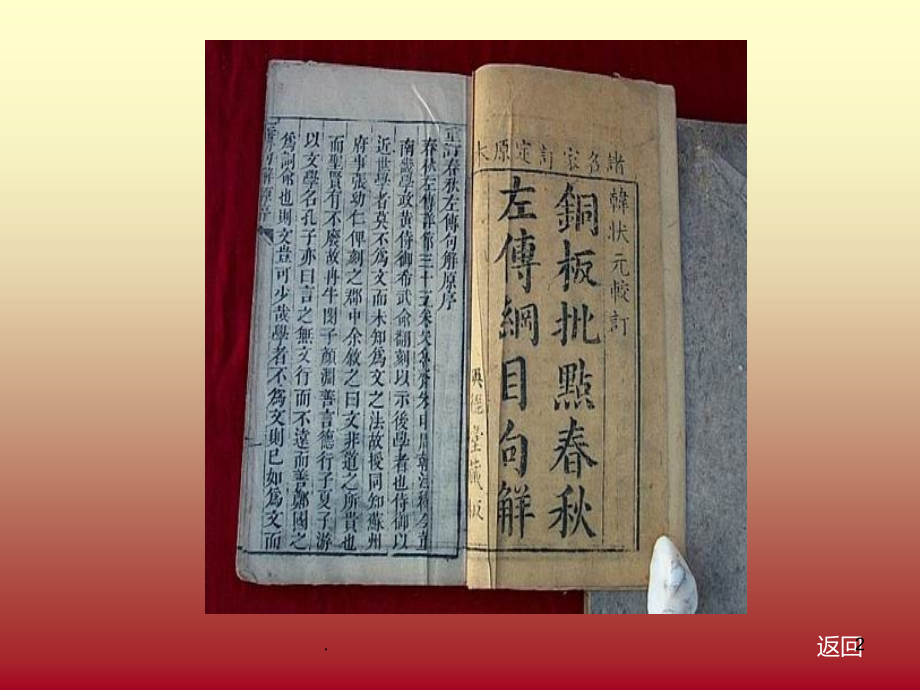 諸名家訂定原本
韓狀元較訂
銅板批點春秋
左傳綱目句解
藏板
重訂春秋左傳句解原序
春秋左傳詳節三十五
南畿學政黄侍御希武命翻刻以示後學者也侍御以
近世學者莫不爲文而未知爲文之法故授同知蘇州
府事張幼仁俾刻之郡中余敘之曰文非道之所貴也
而聖賢有不廢故冉牛閔子顏淵善言德行子夏子游
以文學名孔子亦曰言之無文行而不遠而善鄭國之
爲詞命也則文豈可少哉學者不爲文則已如爲文而
.
返回
2